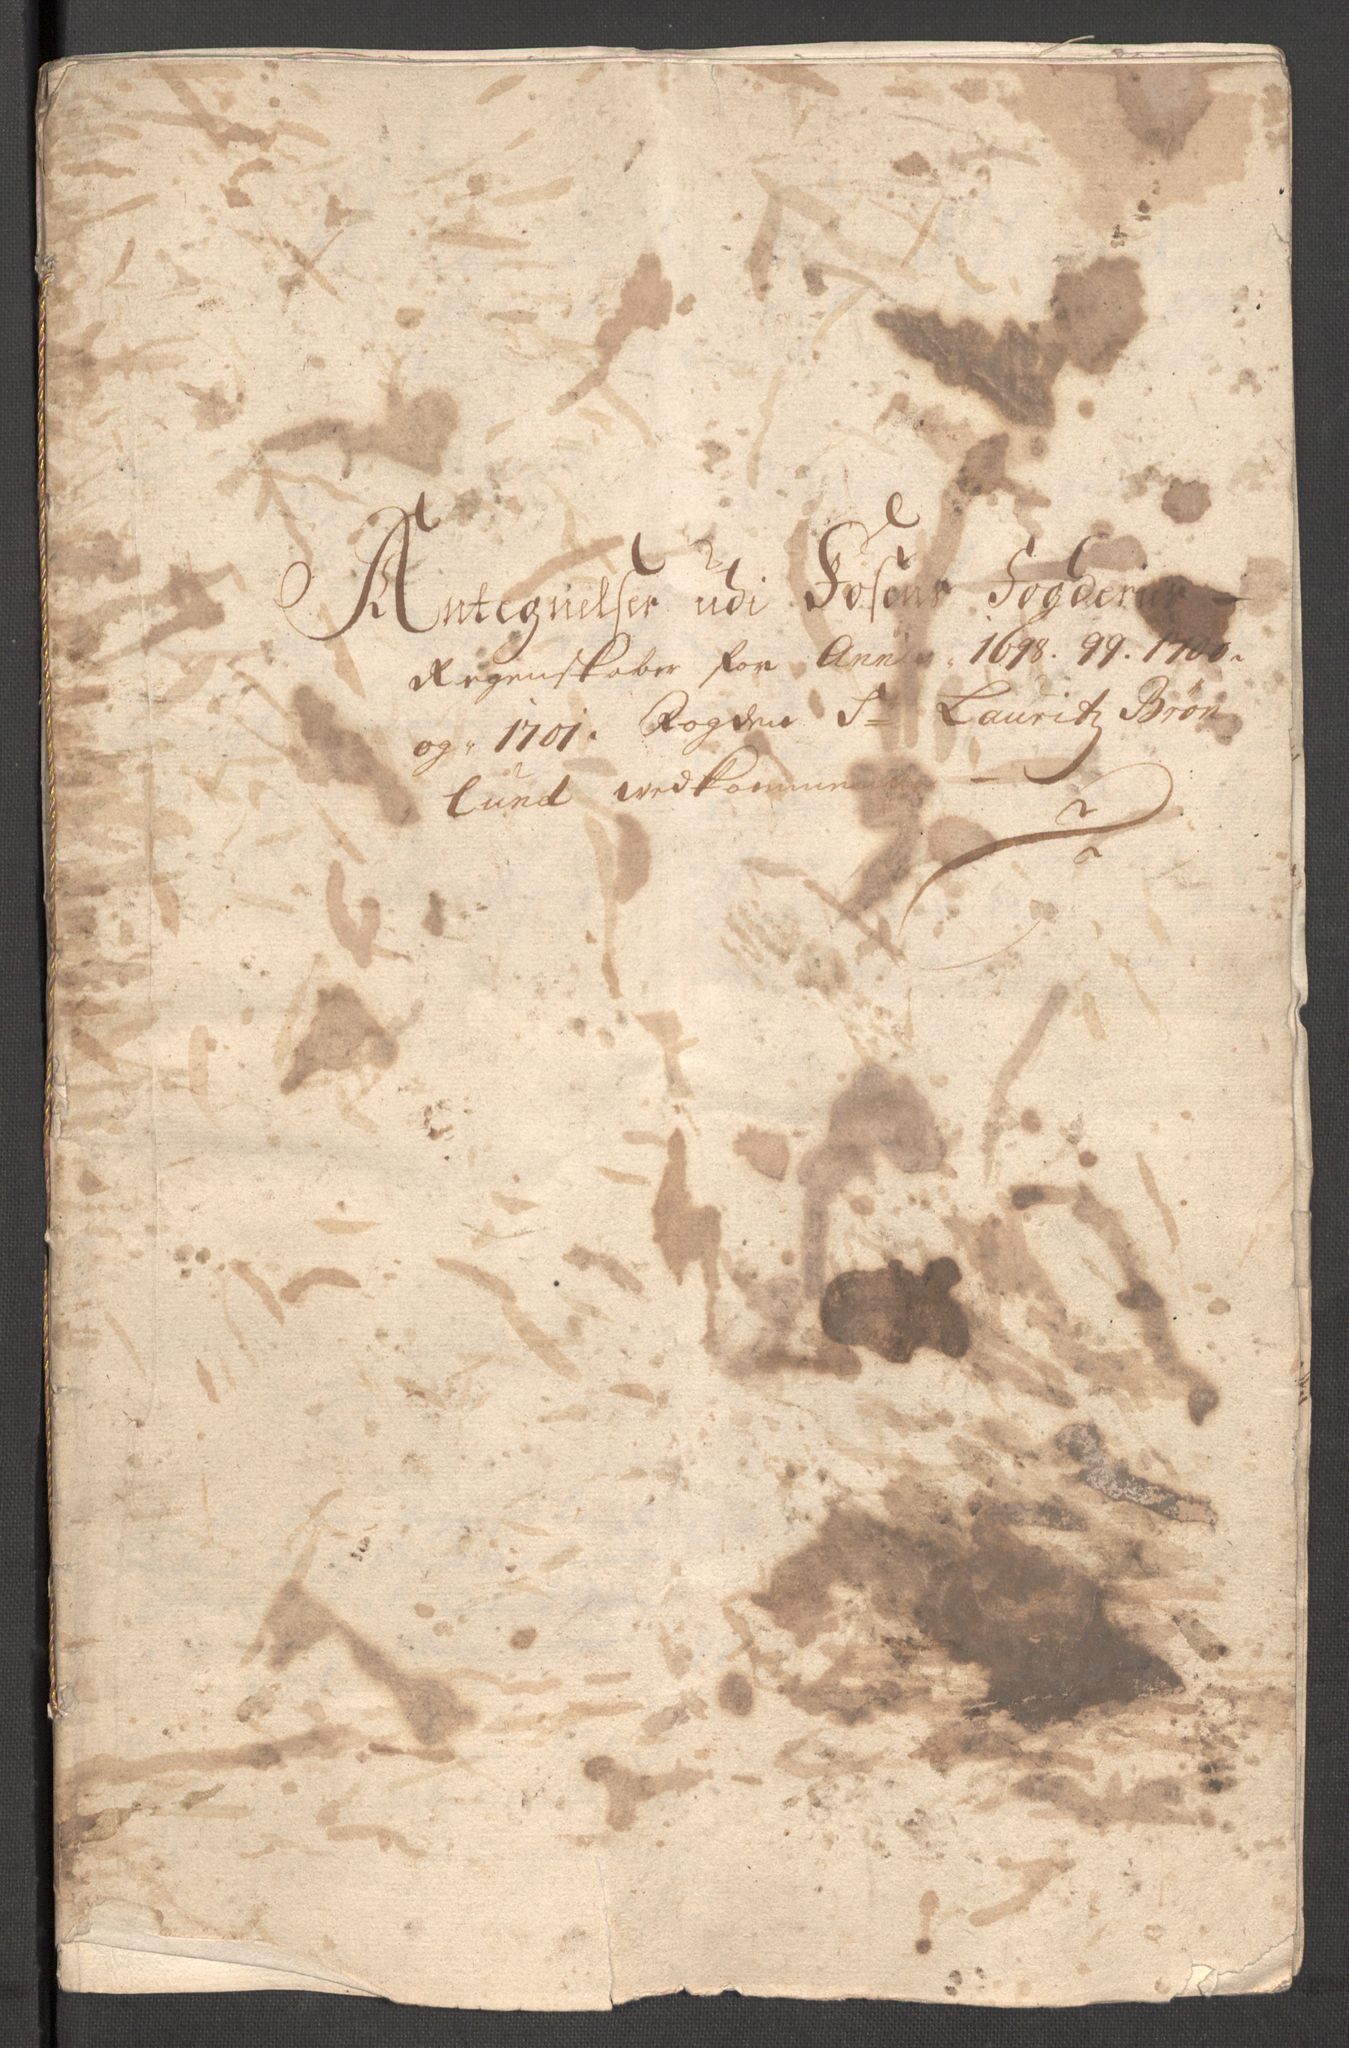 Antegnelser udi Fosens Fogderies
Regenskaber for Anno 1698. 99. 1700.
og 1701. Fogden Sr Lauritz Brøn
lund vedkommende